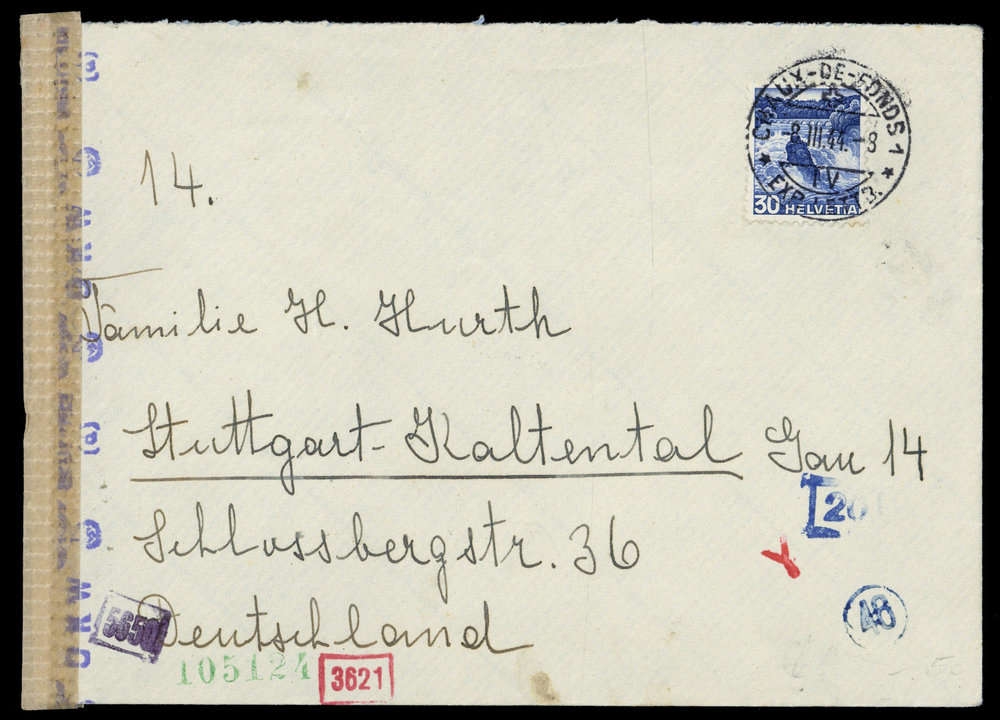 CHAUX-DE-FONDS 1
-8.III.44.-8
IV
30 HELVETIA
14.
Familie H. Hurth
Stuttgart-Kaltental Gau 14
Schlossbergstr. 36
Deutschland
20
48
5650
105124
3621
(a)
(a)
OKW
OKW